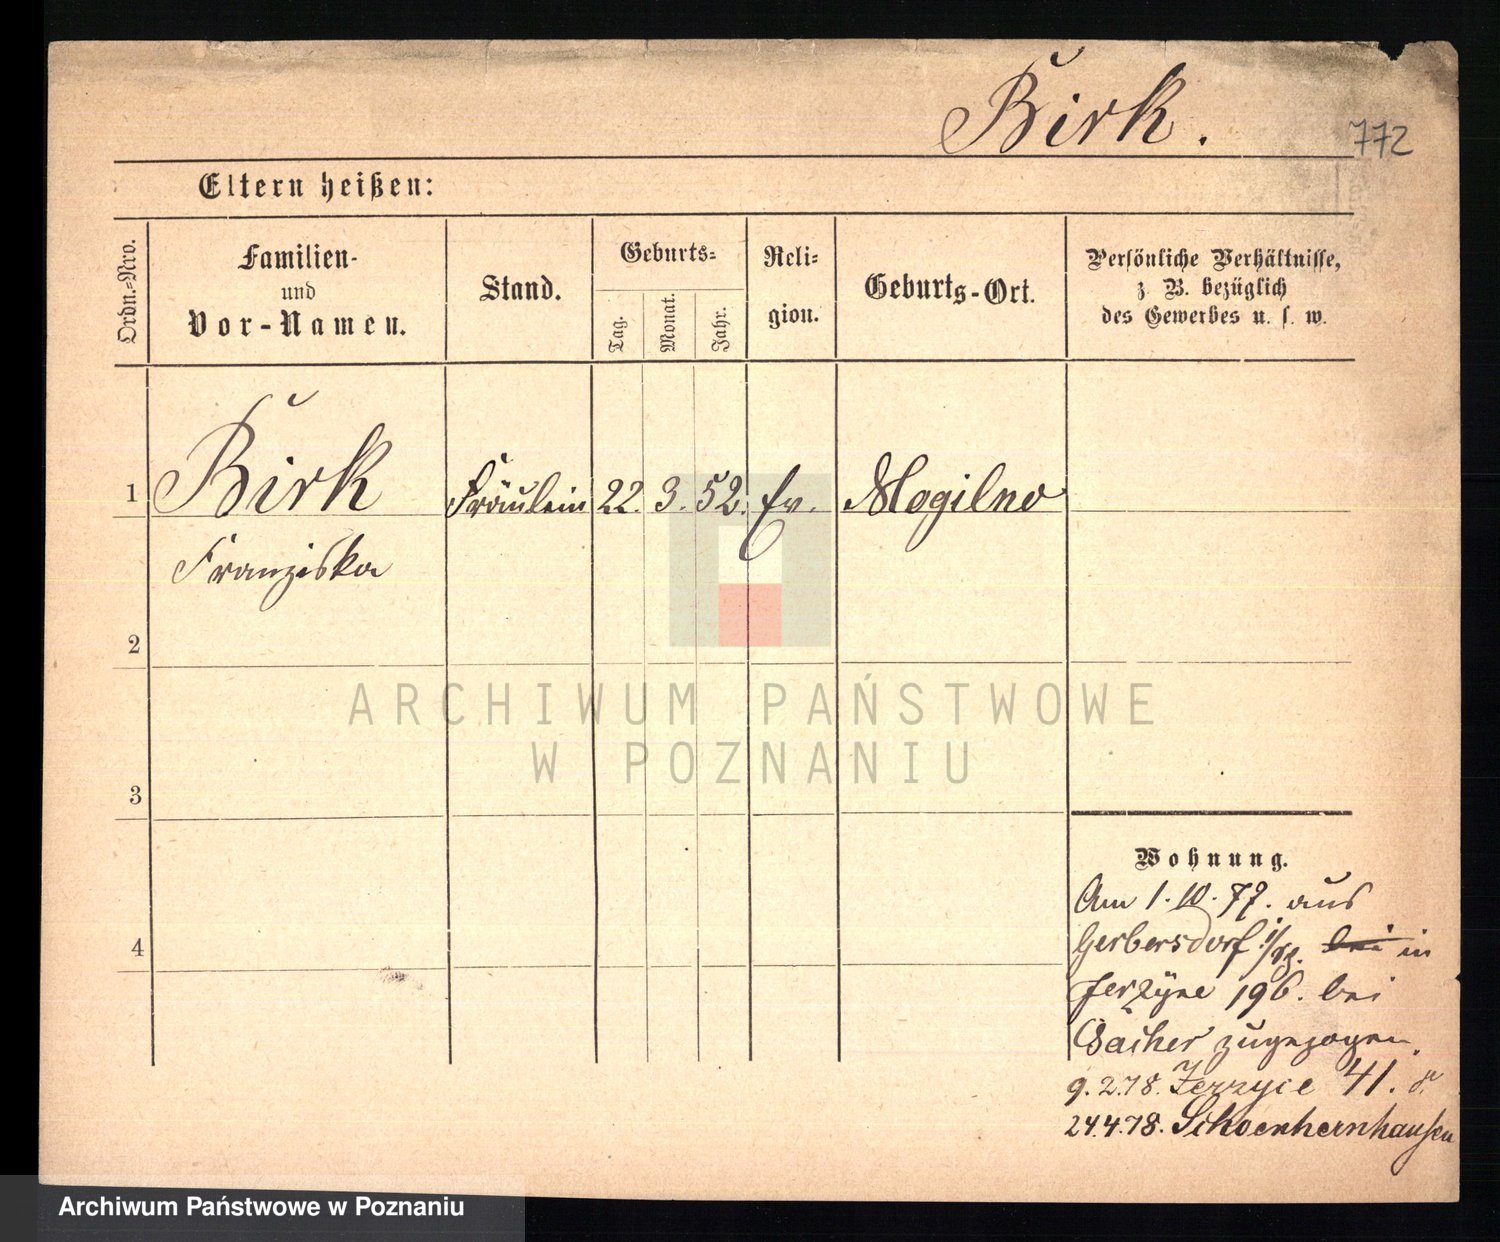 Birk.
772
Eltern heißen:
Ordn.-Nro.
Familien-
und
Vor-Namen.
Stand.
Geburts-
Tag.
Monat.
Jahr.
Reli-
gion.
Geburts-Ort.
Persönliche Verhältnisse,
z. B. bezüglich
des Gewerbes u. s. w.
1 Birk Fräulein 22. 3. 52. Ev. Mogilno
Franziska
2
ARCHIWUM PAŃSTWOWE
W POZNANIU
3
4
Wohnung.
Am 1.10.77. aus
Gerbersdorf bei in
Jerzyce 196. bei
zugezogen.
9.2.78. Jerzyce 41.
24.4.78. Schoenhernhausen
Archiwum Państwowe w Poznaniu